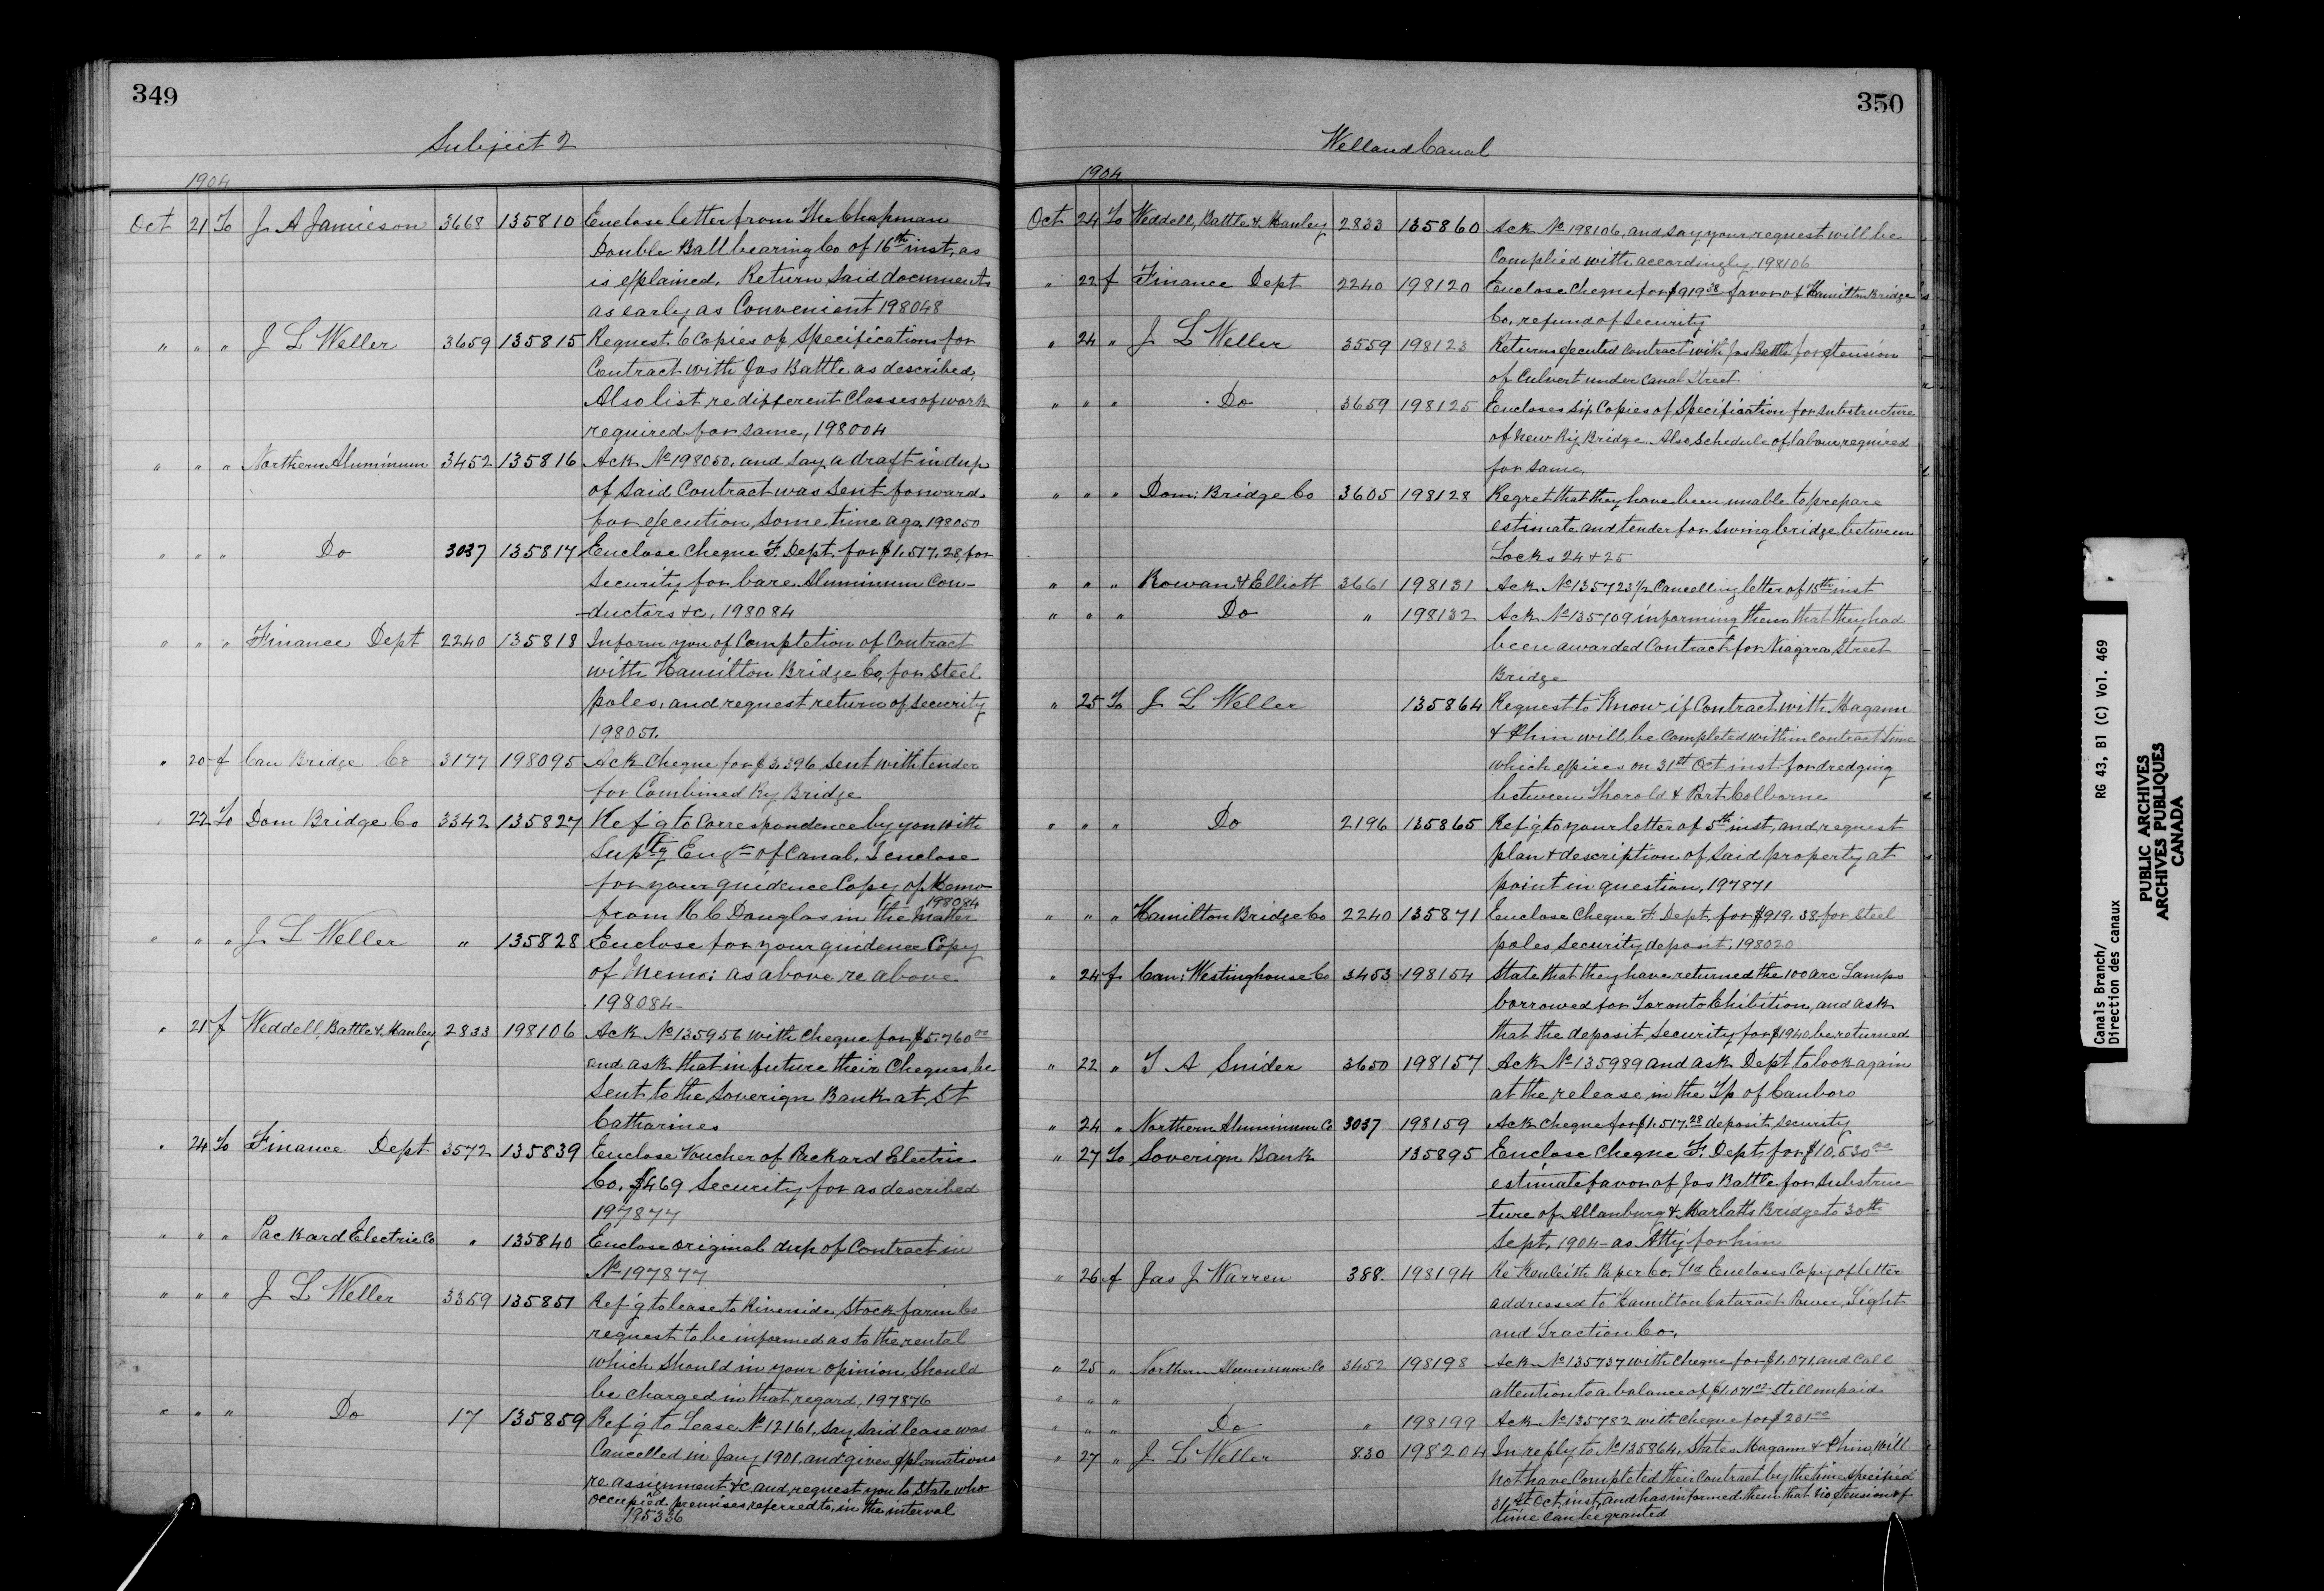 349
Subject 2
1904
Oct 21 To J A Jamieson 3668 135810 Enclose letter from The Chapman
Double Ball bearing Co of 16th inst, as
is explained. Return said documents
as early as Convenient 198048
" " " J L Weller 3659 135815 Request 6 Copies of Specifications for
Contract with Jas Battle as described,
Also list re different Classes of work
required for same, 198004
" " " Northern Aluminum 3452 135816 Ack No 198050, and say a draft in dup
of said Contract was sent forward
for execution some time ago. 198050
" " " Do 3037 135817 Enclose Cheque F. Dept. for $1,517.28, for
security for bare Aluminum Con-
-ductors &c, 198084
" " " Finance Dept 2240 135818 Inform you of Completion of Contract
with Hamilton Bridge Co, for Steel
poles, and request return of security
198051.
" 20 f Can Bridge Co 3177 198095 Ack Cheque for $3,396 sent with tender
for Combined Ry Bridge
" 22 To Dom Bridge Co 3342 135827 Ref'g to Correspondence by you with
Suptg Engr of Canal, I enclose
for your guidence Copy of Memo
from H C Douglas in the matter 198084
" " " J L Weller " 135828 Enclose for your guidence Copy
of Memo: as above re above
198084
" 21 f Weddell, Battle & Hanley 2833 198106 Ack No 135956 with Cheque for $5,760 00
and ask that in future their Cheques, be
sent to the Soverign Bank at St
Catharines
" 24 To Finance Dept 3572 135839 Enclose Voucher of Packard Electric
Co. $469 Security for as described
197877
" " " Packard Electric Co " 135840 Enclose original dup of Contract in
No 197877
" " " J L Weller 3359 135851 Ref'g to lease to Riverside Stock farm Co
request to be informed as to the rental
which should in your opinion should
be charged in that regard, 197876
" " " Do 17 135859 Ref'g to Lease No 12161, say said lease was
Cancelled in Jany 1901, and gives explanations
re assignment &c, and request you to state who
occupied premises referred to, in the interval
195336
350
Welland Canal
1904
Oct 24 To Weddell, Battle & Hanley 2833 135860 Ack No 198106, and say your request will be
Complied with accordingly, 198106
" 22 f Finance Dept 2240 198120 Enclose Cheque for $919 38 favor of Hamilton Bridge
Co, refund of Security
" 24 " J L Weller 3559 198123 Returns executed Contract with Jas Battle for extension
of Culvert under Canal Street
" " " Do 3659 198125 Encloses six Copies of Specification for substructure
of new Ry Bridge. Also schedule of labour required
for same.
" " " Dom: Bridge Co 3605 198128 Regret that they have been unable to prepare
estimate and tender for swing bridge between
Locks 24 & 25
" " " Rowan & Elliott 3661 198131 Ack No 135723 1/2 Cancelling letter of 15th inst
" " " Do " 198132 Ack No 135709 informing them that they had
been awarded Contract for Niagara Street
Bridge
" 25 To J L Weller 135864 Request to Know if Contract with Magann
& Phin will be Completed within contract time
which expires on 31st Oct inst for dredging
between Thorold & Port Colborne
" " " Do 2196 135865 Ref'g to your letter of 5th inst, and request
plan & description of said property at
point in question, 197871
" " " Hamilton Bridge Co 2240 135871 Enclose Cheque F. Dept. for $919.38, for Steel
poles security deposit, 198020
" 24 f Can: Westinghouse Co 3453 198154 State that they have returned the 100 arc Lamps
borrowed for Toronto Exhibition, and ask
that the deposit, security for $1940 be returned
" 22 " T A Snider 3650 198157 Ack No 135989 and ask Dept to look again
at the release in the Tp of Canboro
" 24 " Northern Aluminum Co 3037 198159 Ack cheque for $1,517.28 deposit security
" 27 To Soverign Bank 135895 Enclose Cheque F. Dept, for $10,530 00
estimate favor of Jas Battle for substruc-
-ture of Allanburg & Marlatts Bridge to 30th
Sept, 1904 - as Att'y for him
" 26 f Jas J Warren 388. 198194 Re Kenleith Paper Co. Ltd Encloses Copy of letter
addressed to Hamilton Cataract Power, Light
and Traction Co.
" 25 " Northern Aluminum Co 3452 198198 Ack No 135737 with cheque for $1,071 and Call
attention to a balance of $1,071 00 still unpaid
" " "
" " " Do " 198199 Ack No 135782 with cheque for $281 00
" 27 " J L Weller 830 198204 In reply to No 135864, States Magann & Phin, will
not have Completed their Contract by the time specified
31st Oct, inst, and has informed them that no extension of
time can be granted
Canals Branch/
Direction des canaux
RG 43, B1 (C) Vol. 469
PUBLIC ARCHIVES
ARCHIVES PUBLIQUES
CANADA